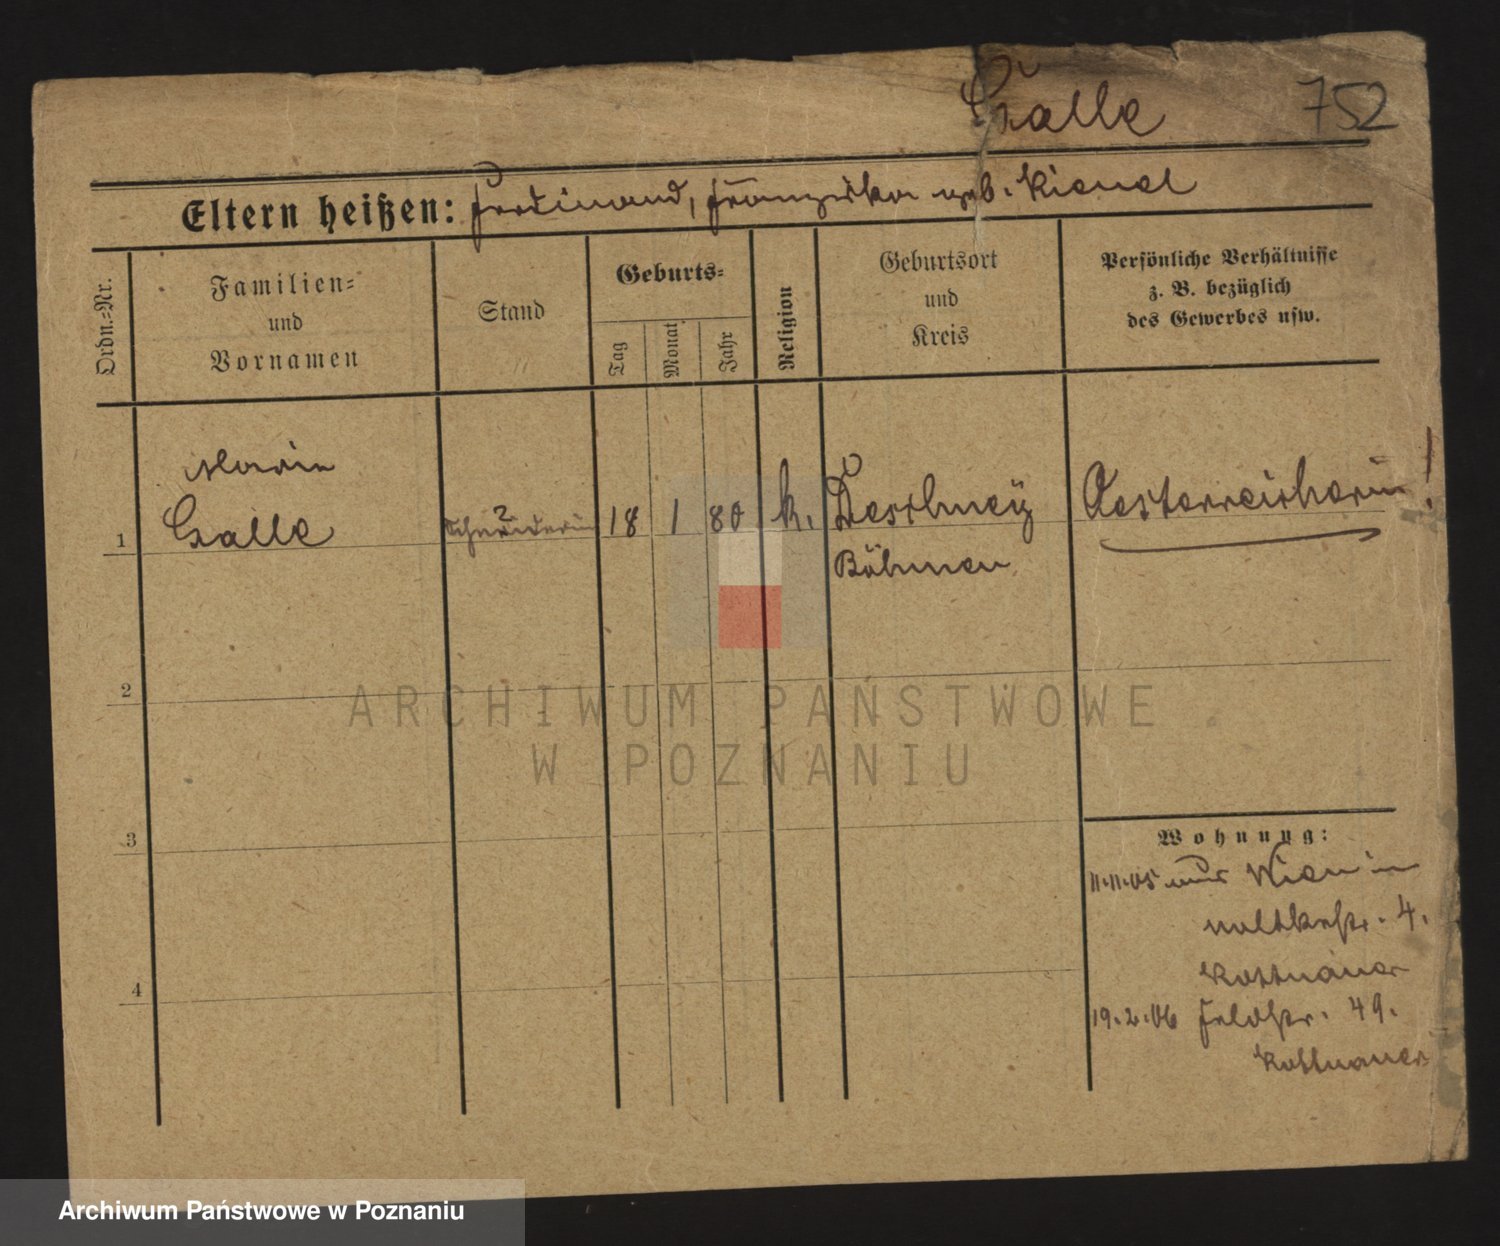 Galle 752
Eltern heißen: Ferdinand, Franziska geb. Kienel
Ordn.=Nr.
Familien=
und
Vornamen
Stand
Geburts=
Tag
Monat
Jahr
Religion
Geburtsort
und
Kreis
Persönliche Verhältnisse
z. B. bezüglich
des Gewerbes usw.
Marie
1 Galle Schneiderin 18 1 80 k. Oesterreicherin!
Böhmen
2
3
4
Wohnung:
11.11.05 aus Wien in
Moltkestr. 4.
19.2.06 Feldstr. 49.
ARCHIWUM PAŃSTWOWE
W POZNANIU
Archiwum Państwowe w Poznaniu